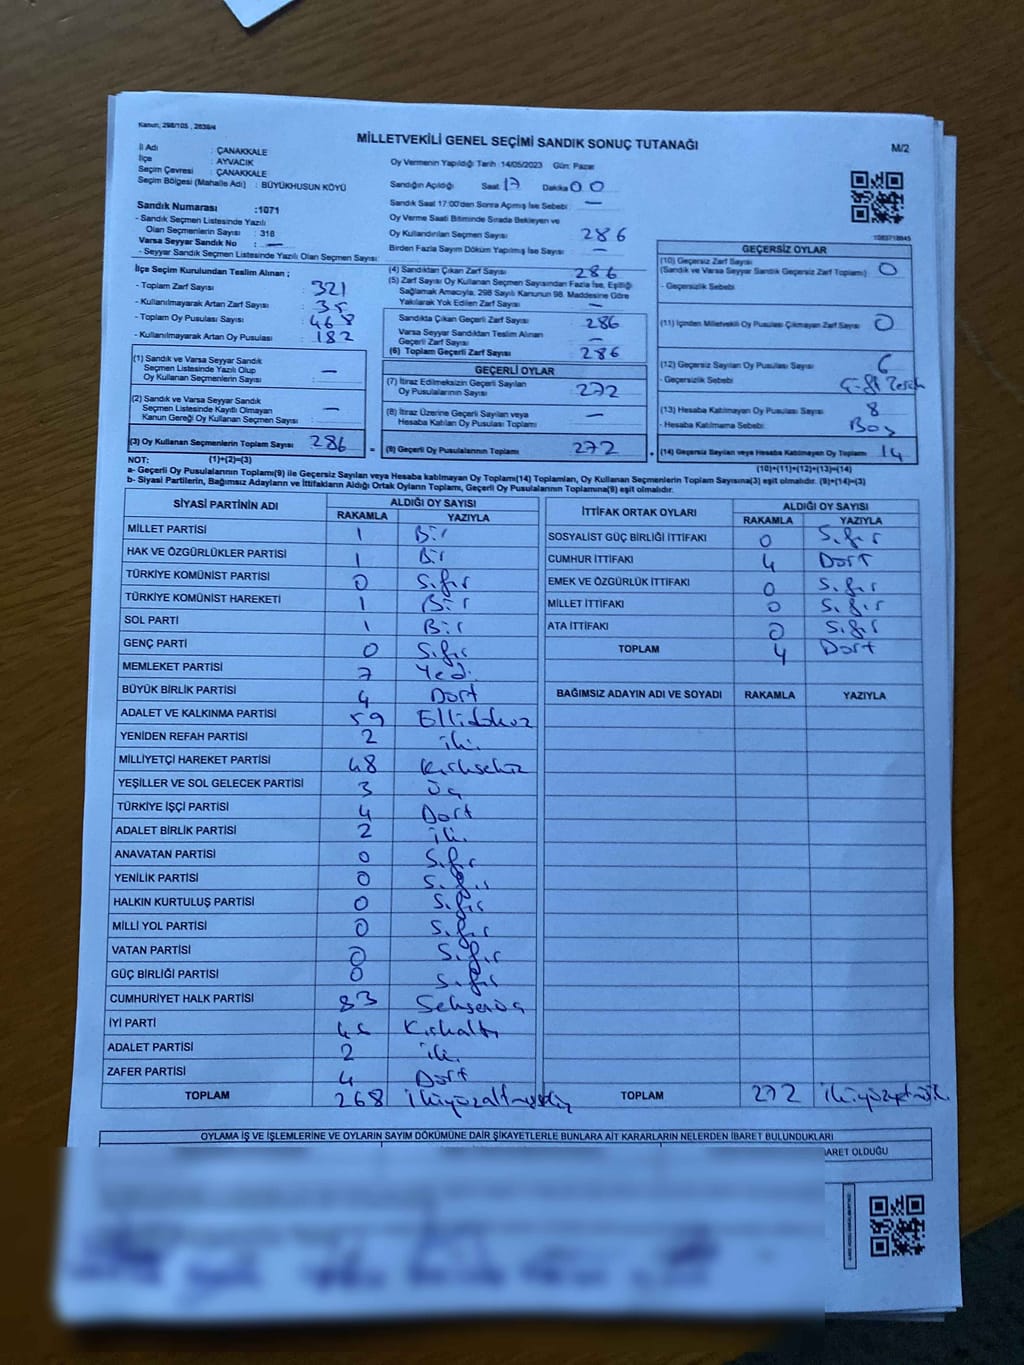 Kanun, 298/105 , 2839/4
MİLLETVEKİLİ GENEL SEÇİMİ SANDIK SONUÇ TUTANAĞI
M/2
İl Adı : ÇANAKKALE
İlçe : AYVACIK
Seçim Çevresi : ÇANAKKALE
Seçim Bölgesi (Mahalle Adı) : BÜYÜKHUSUN KÖYÜ
Oy Vermenin Yapıldığı Tarih :14/05/2023 Gün: Pazar
Sandığın Açıldığı Saat 17 Dakika 00
Sandık Saat 17:00'den Sonra Açmış İse Sebebi: —
Sandık Numarası :1071
- Sandık Seçmen Listesinde Yazılı
Olan Seçmenlerin Sayısı : 318
Varsa Seyyar Sandık No : —
- Seyyar Sandık Seçmen Listesinde Yazılı Olan Seçmen Sayısı:
Oy Verme Saati Bitiminde Sırada Bekleyen ve
Oy Kullandırılan Seçmen Sayısı 286
Birden Fazla Sayım Döküm Yapılmış İse Sayısı: —
1083718845
İlçe Seçim Kurulundan Teslim Alınan ;
- Toplam Zarf Sayısı : 321
- Kullanılmayarak Artan Zarf Sayısı : 35
- Toplam Oy Pusulası Sayısı : 468
- Kullanılmayarak Artan Oy Pusulası : 182
(1) Sandık ve Varsa Seyyar Sandık
Seçmen Listesinde Yazılı Olup
Oy Kullanan Seçmenlerin Sayısı : —
(2) Sandık ve Varsa Seyyar Sandık
Seçmen Listesinde Kayıtlı Olmayan
Kanun Gereği Oy Kullanan Seçmen Sayısı : —
(3) Oy Kullanan Seçmenlerin Toplam Sayısı 286
(4) Sandıktan Çıkan Zarf Sayısı 286
(5) Zarf Sayısı Oy Kullanan Seçmen Sayısından Fazla İse, Eşitliği
Sağlamak Amacıyla, 298 Sayılı Kanunun 98. Maddesine Göre
Yakılarak Yok Edilen Zarf Sayısı —
Sandıkta Çıkan Geçerli Zarf Sayısı 286
Varsa Seyyar Sandıktan Teslim Alınan
Geçerli Zarf Sayısı —
(6) Toplam Geçerli Zarf Sayısı 286
GEÇERLİ OYLAR
(7) İtiraz Edilmeksizin Geçerli Sayılan
Oy Pusulalarının Sayısı : 272
(8) İtiraz Üzerine Geçerli Sayılan veya
Hesaba Katılan Oy Pusulası Toplamı : —
(9) Geçerli Oy Pusulalarının Toplamı 272
GEÇERSİZ OYLAR
(10) Geçersiz Zarf Sayısı
(Sandık ve Varsa Seyyar Sandık Geçersiz Zarf Toplamı) : 0
- Geçersizlik Sebebi :
(11) İçinden Milletvekili Oy Pusulası Çıkmayan Zarf Sayısı : 0
(12) Geçersiz Sayılan Oy Pusulası Sayısı : 6
- Geçersizlik Sebebi :
(13) Hesaba Katılmayan Oy Pusulası Sayısı : 8
- Hesaba Katılmama Sebebi : Boş
(14) Geçersiz Sayılan veya Hesaba Katılmayan Oy Toplamı 14
NOT: (1)+(2)=(3) (10)+(11)+(12)+(13)=(14)
a- Geçerli Oy Pusulalarının Toplamı(9) ile Geçersiz Sayılan veya Hesaba katılmayan Oy Toplamı(14) Toplamları, Oy Kullanan Seçmenlerin Toplam Sayısına(3) eşit olmalıdır. (9)+(14)=(3)
b- Siyasi Partilerin, Bağımsız Adayların ve İttifakların Aldığı Ortak Oyların Toplamı, Geçerli Oy Pusulalarının Toplamına(9) eşit olmalıdır.
SİYASİ PARTİNİN ADI ALDIĞI OY SAYISI
RAKAMLA YAZIYLA
MİLLET PARTİSİ 1 Bir
HAK VE ÖZGÜRLÜKLER PARTİSİ 1 Bir
TÜRKİYE KOMÜNİST PARTİSİ 0 Sıfır
TÜRKİYE KOMÜNİST HAREKETİ 1 Bir
SOL PARTİ 1 Bir
GENÇ PARTİ 0 Sıfır
MEMLEKET PARTİSİ 7 Yedi
BÜYÜK BİRLİK PARTİSİ 4 Dört
ADALET VE KALKINMA PARTİSİ 59 Ellidokuz
YENİDEN REFAH PARTİSİ 2 iki
MİLLİYETÇİ HAREKET PARTİSİ 48 Kırksekiz
YEŞİLLER VE SOL GELECEK PARTİSİ 3 Üç
TÜRKİYE İŞÇİ PARTİSİ 4 Dört
ADALET BİRLİK PARTİSİ 2 iki
ANAVATAN PARTİSİ 0 Sıfır
YENİLİK PARTİSİ 0 Sıfır
HALKIN KURTULUŞ PARTİSİ 0 Sıfır
MİLLİ YOL PARTİSİ 0 Sıfır
VATAN PARTİSİ 0 Sıfır
GÜÇ BİRLİĞİ PARTİSİ 0 Sıfır
CUMHURİYET HALK PARTİSİ 83 Seksenüç
İYİ PARTİ 46 Kırkaltı
ADALET PARTİSİ 2 iki
ZAFER PARTİSİ 4 Dört
TOPLAM 268 ikiyüzaltmışsekiz
İTTİFAK ORTAK OYLARI ALDIĞI OY SAYISI
RAKAMLA YAZIYLA
SOSYALİST GÜÇ BİRLİĞİ İTTİFAKI 0 Sıfır
CUMHUR İTTİFAKI 4 Dört
EMEK VE ÖZGÜRLÜK İTTİFAKI 0 Sıfır
MİLLET İTTİFAKI 0 Sıfır
ATA İTTİFAKI 0 Sıfır
TOPLAM 4 Dört
BAĞIMSIZ ADAYIN ADI VE SOYADI RAKAMLA YAZIYLA
TOPLAM 272 ikiyüzyetmişiki
OYLAMA İŞ VE İŞLEMLERİNE VE OYLARIN SAYIM DÖKÜMÜNE DAİR ŞİKAYETLERLE BUNLARA AİT KARARLARIN NELERDEN İBARET BULUNDUKLARI
BARET OLDUĞU